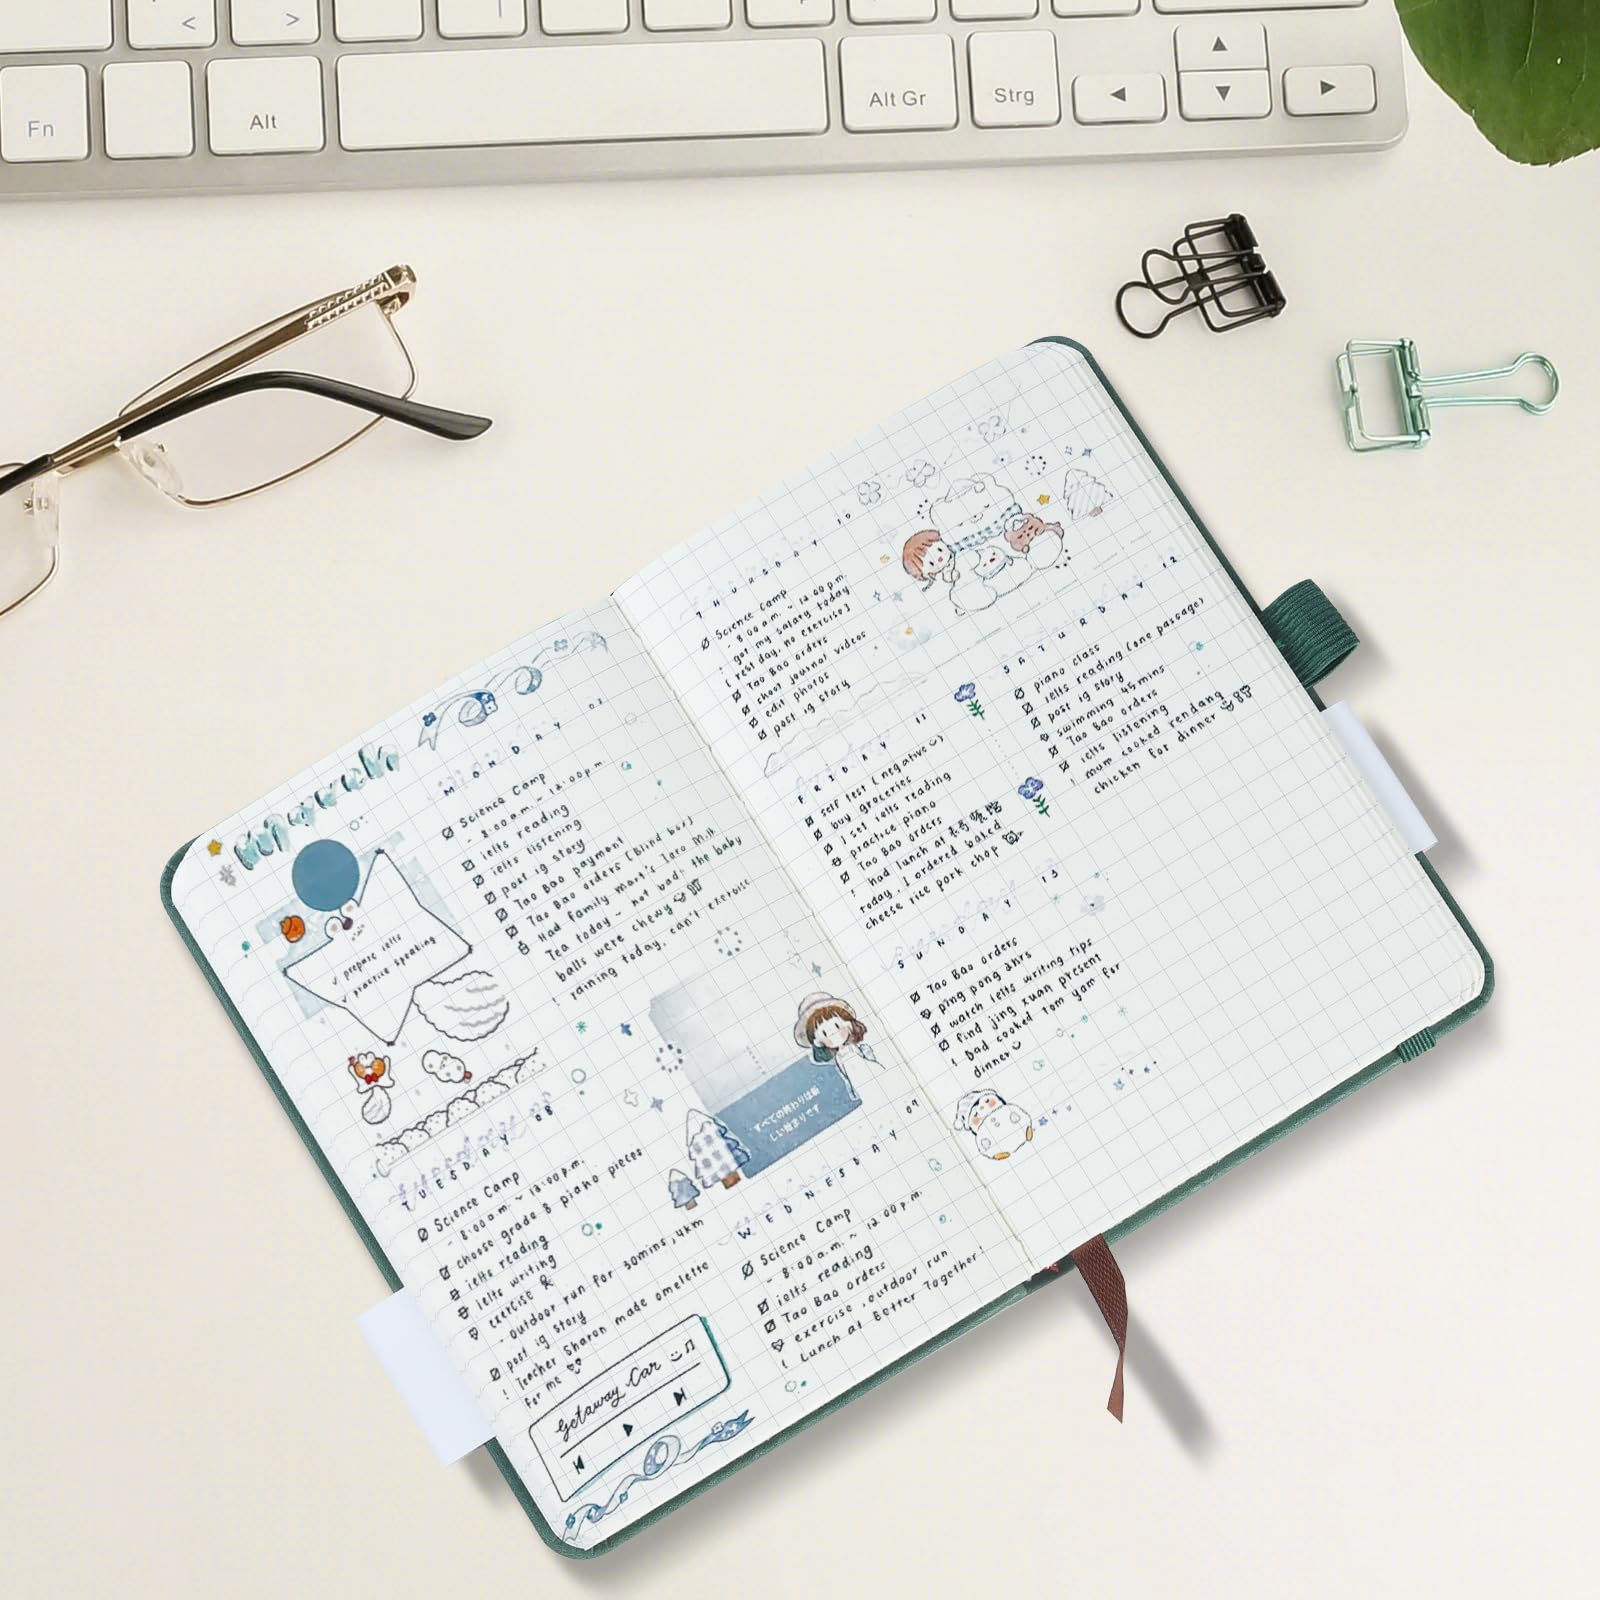 <
>
Fn
Alt
Alt Gr
Strg
✓ prepare ielts
✓ practice speaking
MONDAY 07
Science Camp
- 8:00a.m. ~ 12:00p.m.
ielts reading
ielts listening
post ig story
Tao Bao payment
Tao Bao orders (Blind box)
Had family mart's Taro Milk
Tea today ~ not bad! the baby
balls were chewy
! raining today, can't exercise
TUESDAY 08
Science Camp
- 8:00a.m. ~ 12:00p.m.
choose grade 8 piano pieces
ielts reading
ielts writing
exercise
- outdoor run for 30mins, 4km
post ig story
! Teacher Sharon made omelette
for me
Getaway Car
すべての終わりは新
しい始まりです
WEDNESDAY 09
Science Camp
- 8:00a.m. ~ 12:00p.m.
ielts reading
Tao Bao orders
exercise, outdoor run
! Lunch at Better Together!
THURSDAY 10
Science Camp
- 8:00a.m. ~ 12:00p.m.
! got my salary today
( rest day, no exercise)
Tao Bao orders
shoot journal videos
edit photos
post ig story
FRIDAY 11
self test (negative)
buy groceries
1 set ielts reading
practice piano
Tao Bao orders
! had lunch at
today, I ordered baked
cheese rice pork chop
SATURDAY 12
piano class
ielts reading (one passage)
post ig story
swimming 45mins
Tao Bao orders
ielts listening
! mum cooked rendang
chicken for dinner
SUNDAY 13
Tao Bao orders
ping pong 2hrs
watch ielts writing tips
find jing xuan present
! Dad cooked Tom yam for
dinner